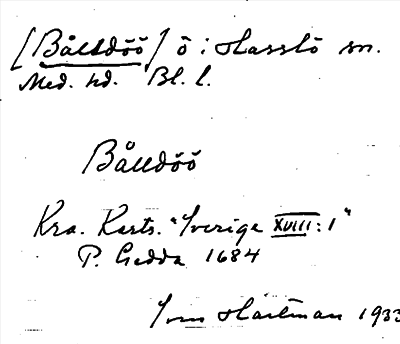 [Bålldöö] ö i Hasslö sn.
Med. hd. Bl. l.
Bålldöö
Kra. Karts. "Sverige XVIII:1"
P. Gedda 1684
Ivar Hartman 1933